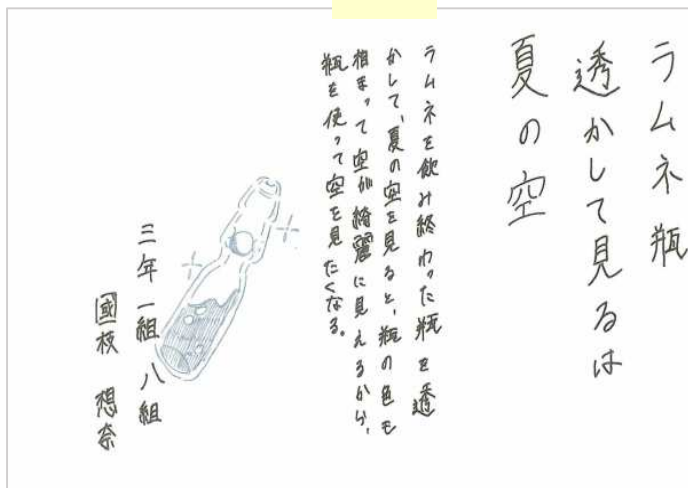 ラムネ瓶
透かして見るは
夏の空
ラムネを飲み終わった瓶を透
かして、夏の空を見ると、瓶の色も
相まって空が綺麗に見えるから、
瓶を使って空を見たくなる。
三年一組 八組
國枝 想奈